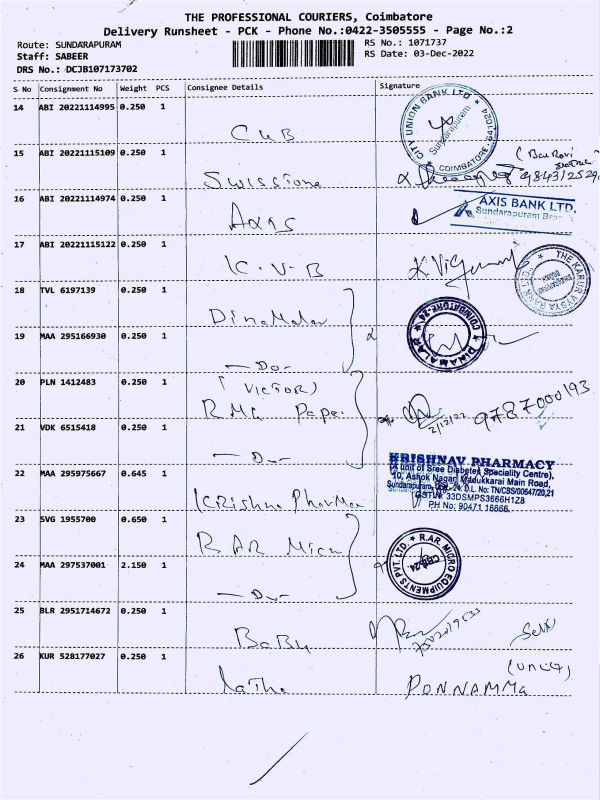 THE PROFESSIONAL COURIERS, Coimbatore
Delivery Runsheet - PCK - Phone No.:0422-3505555 - Page No.:2
Route: SUNDARAPURAM
RS No.: 1071737
Staff: SABEER
RS Date: 03-Dec-2022
DRS No.: DCJB107173702
S No Consignment No Weight PCS Consignee Details Signature
14 ABI 20221114995 0.250 1
CUB
CITY UNION BANK LTD
Sundarapuram
COIMBATORE-641024
15 ABI 20221115109 0.250 1
Swisstone
16 ABI 20221114974 0.250 1
Axis
AXIS BANK LTD.
Sundarapuram
17 ABI 20221115122 0.250 1
K.V.B
THE KARUR VYSYA BANK LTD
18 TVL 6197139 0.250 1
DinaMalar
DINAMALAR
COIMBATORE-24
19 MAA 295166930 0.250 1
-Do-
20 PLN 1412483 0.250 1
(VICTOR)
RMG Paper
2/12/22
9787000193
21 VDK 6515418 0.250 1
-Do-
22 MAA 295975667 0.645 1
Krishna Pharma
KRISHNAV PHARMACY
(A unit of Sree Diabetes Speciality Centre),
10, Ashok Nagar, Madukkarai Main Road,
Sundarapuram, CBE-24. D.L. No: TN/CBS/00647/20,21
GSTIN: 33DSMPS3666H1Z8
PH No: 90471 16666.
23 SVG 1955700 0.650 1
R AR Micro
R.AR. MICRO EQUIPMENTS PVT. LTD.
CBE-24.
24 MAA 297537001 2.150 1
-Do-
25 BLR 2951714672 0.250 1
Baby
Self
26 KUR 528177027 0.250 1
Latha
(UNCLE)
PONNAMMA